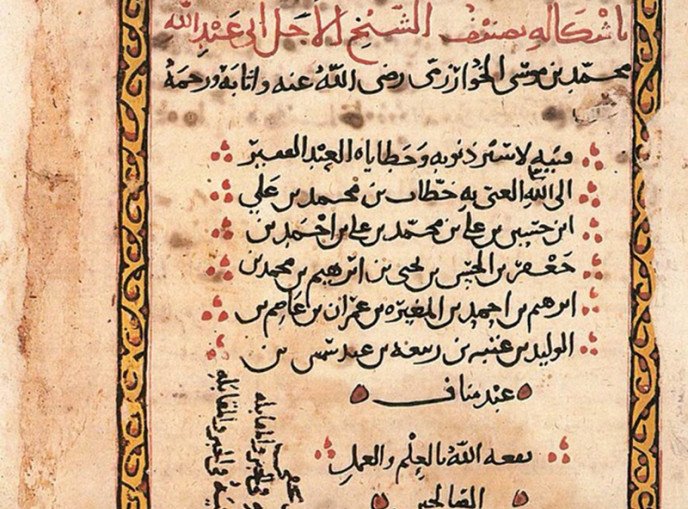 باشكاله تصنيف الشيخ الاجل ابي عبد الله
محمد بن موسى الخوارزمي رضى الله عنه واثابه ورحمه
لاسير ذنوبه وخطاياه العبد الفقير
الى الله الغني به خطاب بن محمد بن علي
ابن حسين بن علي بن محمد بن علي بن احمد بن
جعفر بن الحسين بن يحيى بن ابرهيم بن محمد بن
ابرهيم بن احمد بن المغيره بن عمران بن عاصم بن
الوليد بن عتبه بن ربيعه بن عبد شمس بن
عبد مناف
نفعه الله بالعلم والعمل
الصالحين